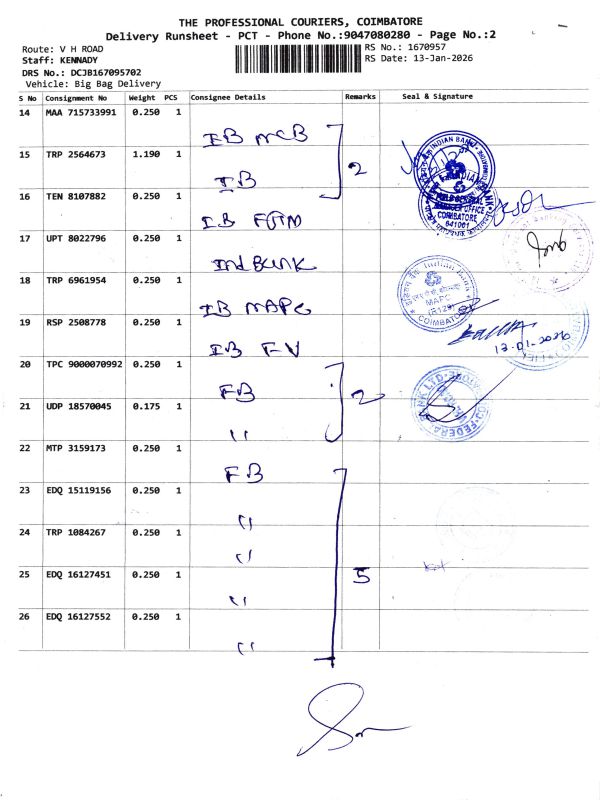 THE PROFESSIONAL COURIERS, COIMBATORE
Delivery Runsheet - PCT - Phone No.:9047080280 - Page No.:2
Route: V H ROAD
RS No.: 1670957
Staff: KENNADY
RS Date: 13-Jan-2026
DRS No.: DCJB167095702
Vehicle: Big Bag Delivery
S No Consignment No Weight PCS Consignee Details Remarks Seal & Signature
14 MAA 715733991 0.250 1 IB MCB
15 TRP 2564673 1.190 1 IB 2
16 TEN 8107882 0.250 1 IB FGM
17 UPT 8022796 0.250 1 Ind Bank
18 TRP 6961954 0.250 1 IB MAPC
19 RSP 2508778 0.250 1 IB FV
20 TPC 9000070992 0.250 1 FB 2
21 UDP 18570045 0.175 1 "
22 MTP 3159173 0.250 1 FB
23 EDQ 15119156 0.250 1 "
24 TRP 1084267 0.250 1 "
25 EDQ 16127451 0.250 1 " 5
26 EDQ 16127552 0.250 1 "
INDIAN BANK
COIMBATORE
641001
Indian Bank
MAPC
COIMBATORE